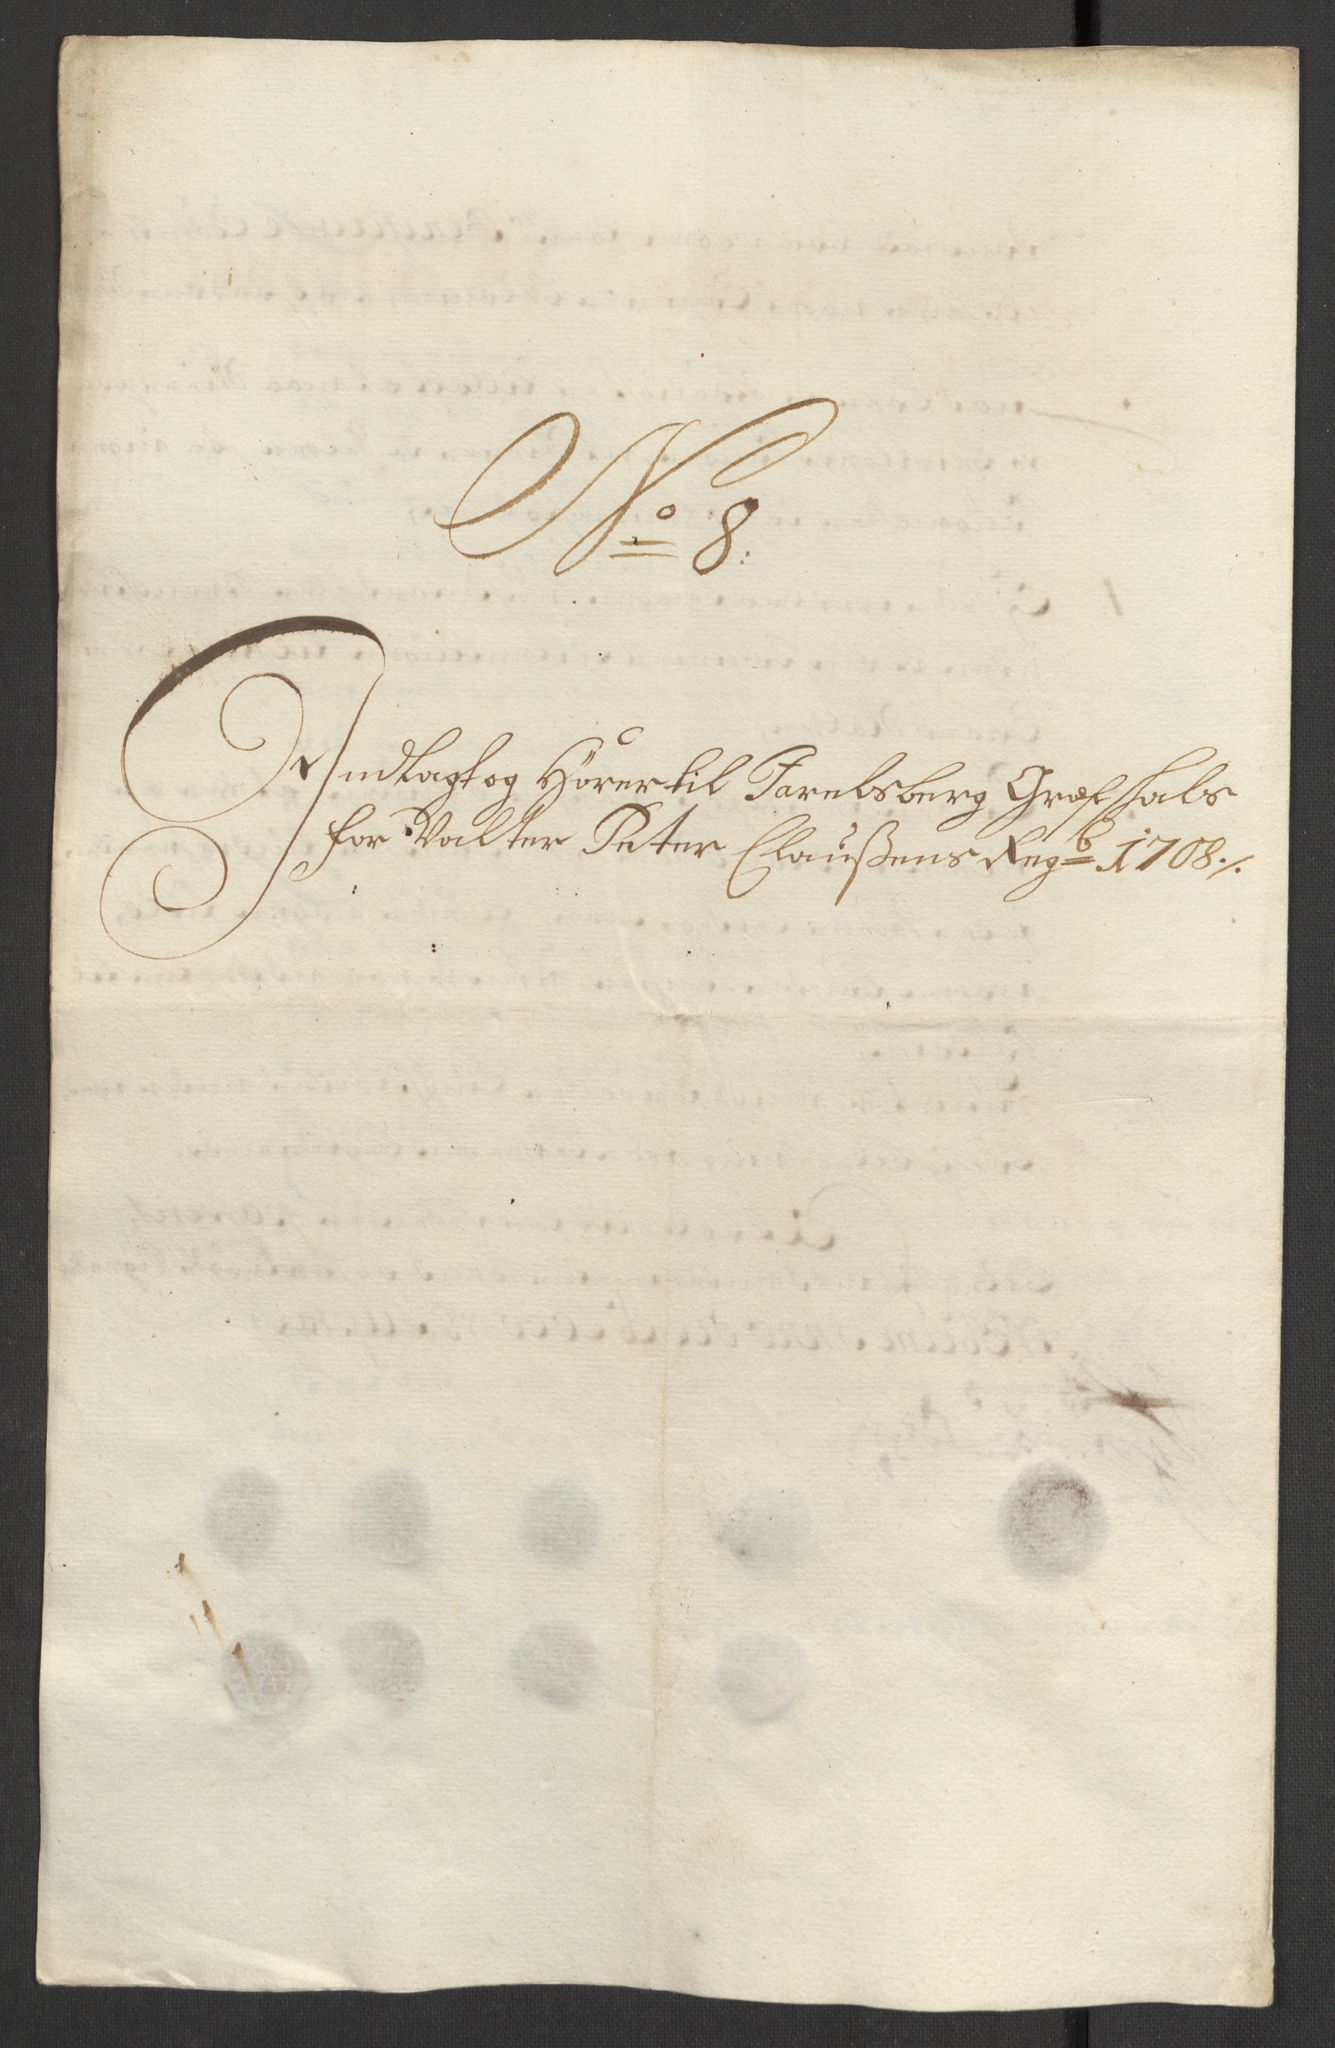 No 8:
Indlagt og Hörer til Jarelsberg Grefschabs
for Valter Peter Claußens Regb 1708./.